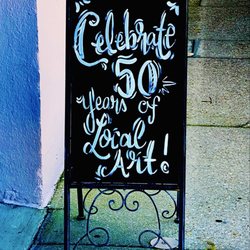 Celebrate
50
years of
Local
Art!